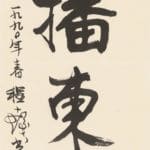 播東
一九九〇年春